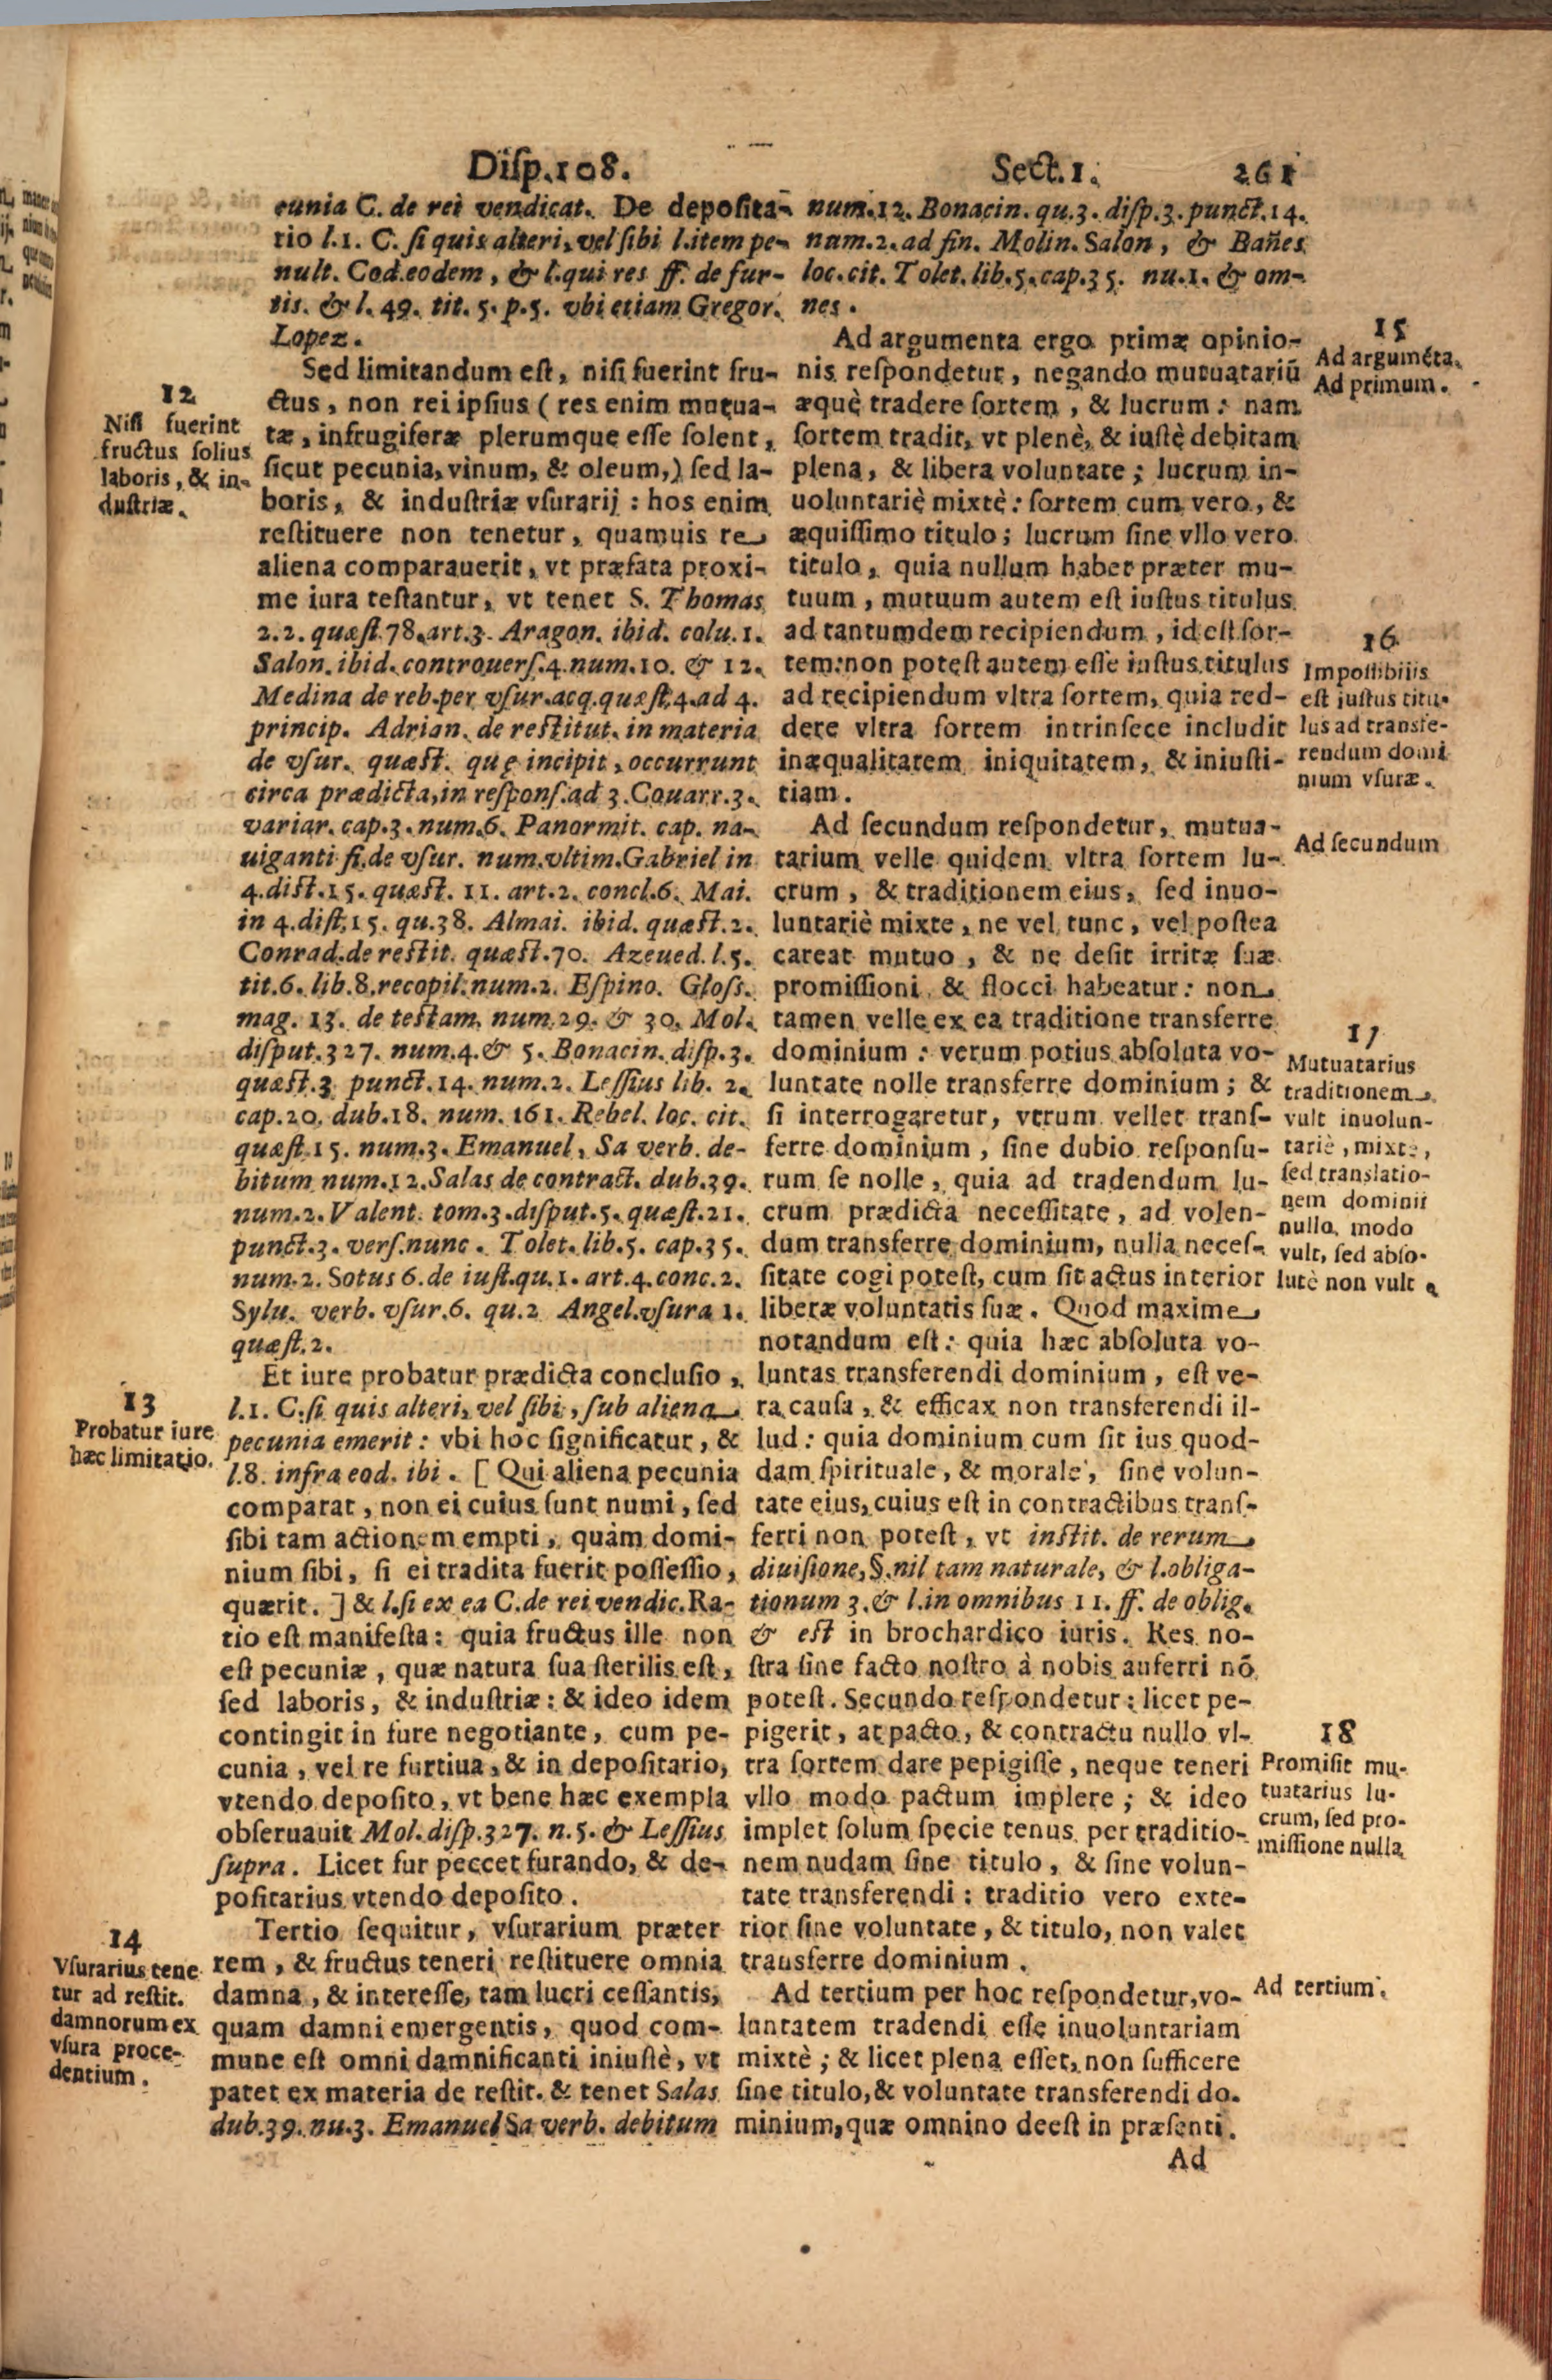 Disp.108. Sect.1. 261
cunia C. de rei vendicat. De deposita-
rio l.1. C. si quis alteri, vel sibi l.item pe-
nult. Cod.eodem, & l.qui res ff. de fur-
tis. & l. 49. tit. 5. p.5. vbi etiam Gregor.
Lopez.
12
Nisi fuerint
fructus solius
laboris, & in-
dustriæ.
Sed limitandum est, nisi fuerint fru-
ctus, non rei ipsius (res enim mutua-
tæ, infrugiferæ plerumque esse solent,
sicut pecunia, vinum, & oleum,) sed la-
boris, & industriæ vsurarij: hos enim
restituere non tenetur, quamuis re
aliena comparauerit, vt præfata proxi-
me iura testantur, vt tenet S. Thomas
2.2. quæst.78.art.3. Aragon. ibid. colu.1.
Salon. ibid. controuers.4.num.10. & 12.
Medina de reb.per vsur.acq.quæst.4.ad 4.
princip. Adrian. de restitut. in materia
de vsur. quæst. quę incipit, occurrunt
circa prædicta, in respons.ad 3. Couarr.3.
variar. cap.3. num.6. Panormit. cap. na-
uiganti fi.de vsur. num.vltim.Gabriel in
4.dist.15. quæst. 11. art.2. concl.6. Mai.
in 4.dist.15. qu.38. Almai. ibid. quæst.2.
Conrad.de restit. quæst.70. Azeued. l.5.
tit.6. lib.8.recopil.num.2. Espino. Gloss.
mag. 13. de testam. num.29. & 30. Mol.
disput.327. num.4.& 5. Bonacin. disp.3.
quæst.3 punct.14. num.2. Lessius lib. 2.
cap.20. dub.18. num.161. Rebel. loc. cit.
quæst.15. num.3. Emanuel, Sa verb. de-
bitum num.12.Salas de contract. dub.39.
num.2. Valent. tom.3.disput.5.quæst.21.
punct.3. vers.nunc. Tolet. lib.5. cap.35.
num.2. Sotus 6.de iust.qu.1. art.4.conc.2.
Sylu. verb. vsur.6. qu.2 Angel.vsura 1.
quæst.2.
13
Probatur iure
hæc limitatio.
Et iure probatur prædicta conclusio,
l.1. C.si quis alteri, vel sibi, sub aliena
pecunia emerit: vbi hoc significatur, &
l.8. infra eod. ibi. [Qui aliena pecunia
comparat, non ei cuius sunt numi, sed
sibi tam actionem empti, quàm domi-
nium sibi, si ei tradita fuerit possessio,
quærit.] & l.si ex ea C.de rei vendic.Ra-
tio est manifesta: quia fructus ille non
est pecuniæ, quæ natura sua sterilis est,
sed laboris, & industriæ: & ideo idem
contingit in fure negotiante, cum pe-
cunia, vel re furtiua, & in depositario,
vtendo deposito, vt bene hæc exempla
obseruauit Mol.disp.327. n.5. & Lessius
supra. Licet fur peccet furando, & de-
positarius vtendo deposito.
14
Vsurarius tene
tur ad restit.
damnorum ex
vsura proce-
dentium.
Tertio sequitur, vsurarium præter
rem, & fructus teneri restituere omnia
damna, & interesse, tam lucri cessantis,
quam damni emergentis, quod com-
mune est omni damnificanti iniustè, vt
patet ex materia de restit. & tenet Salas
dub.39. nu.3. Emanuel Sa verb. debitum
num.12. Bonacin. qu.3. disp.3. punct.14.
num.2. ad fin. Molin. Salon, & Bañes
loc.cit. Tolet. lib.5.cap.35. nu.1. & om-
nes.
15
Ad arguméta.
Ad primum.
Ad argumenta ergo primæ opinio-
nis respondetur, negando mutuatariũ
æquè tradere sortem, & lucrum: nam
sortem tradit, vt plenè, & iustè debitam
plena, & libera voluntate; lucrum in-
uoluntariè mixtè: sortem cum vero, &
æquissimo titulo; lucrum sine vllo vero
titulo, quia nullum habet præter mu-
tuum, mutuum autem est iustus titulus
ad tantumdem recipiendum, id est sor-
tem: non potest autem esse iustus titulus
ad recipiendum vltra sortem, quia red-
dere vltra sortem intrinsece includit
inæqualitatem iniquitatem, & iniusti-
tiam.
16
Impossibilis
est iustus titu-
lus ad transfe-
rendum domi
nium vsuræ.
Ad secundum
Ad secundum respondetur, mutua-
tarium velle quidem vltra sortem lu-
crum, & traditionem eius, sed inuo-
luntariè mixte, ne vel tunc, vel postea
careat mutuo, & ne desit irritæ suæ
promissioni & flocci habeatur: non
tamen velle ex ea traditione transferre
dominium: verum potius absoluta vo-
luntate nolle transferre dominium; &
si interrogaretur, vtrum vellet trans-
ferre dominium, sine dubio responsu-
rum se nolle, quia ad tradendum lu-
crum prædicta necessitate, ad volen-
dum transferre dominium, nulla neces-
sitate cogi potest, cum sit actus interior
liberæ voluntatis suæ. Quod maxime
notandum est: quia hæc absoluta vo-
luntas transferendi dominium, est ve-
ra causa, & efficax non transferendi il-
lud: quia dominium cum sit ius quod-
dam spirituale, & morale, sine volun-
tate eius, cuius est in contractibus trans-
ferri non potest, vt instit. de rerum
diuisione, §.nil tam naturale, & l.obliga-
tionum 3.& l.in omnibus 11. ff. de oblig.
& est in brochardico iuris. Res no-
stra sine facto nostro à nobis auferri nõ
potest. Secundo respondetur: licet pe-
pigerit, at pacto, & contractu nullo vl-
tra sortem dare pepigisse, neque teneri
vllo modo pactum implere; & ideo
implet solum specie tenus per traditio-
nem nudam sine titulo, & sine volun-
tate transferendi: traditio vero exte-
rior sine voluntate, & titulo, non valet
transferre dominium.
17
Mutuatarius
traditionem
vult inuolun-
tariè, mixte,
sed translatio-
nem dominii
nullo modo
vult, sed abso-
lutè non vult.
18
Promisit mu-
tuatarius lu-
crum, sed pro-
missione nulla
Ad tertium.
Ad tertium per hoc respondetur, vo-
luntatem tradendi esse inuoluntariam
mixtè; & licet plena esset, non sufficere
sine titulo, & voluntate transferendi do-
minium, quæ omnino deest in præsenti.
Ad